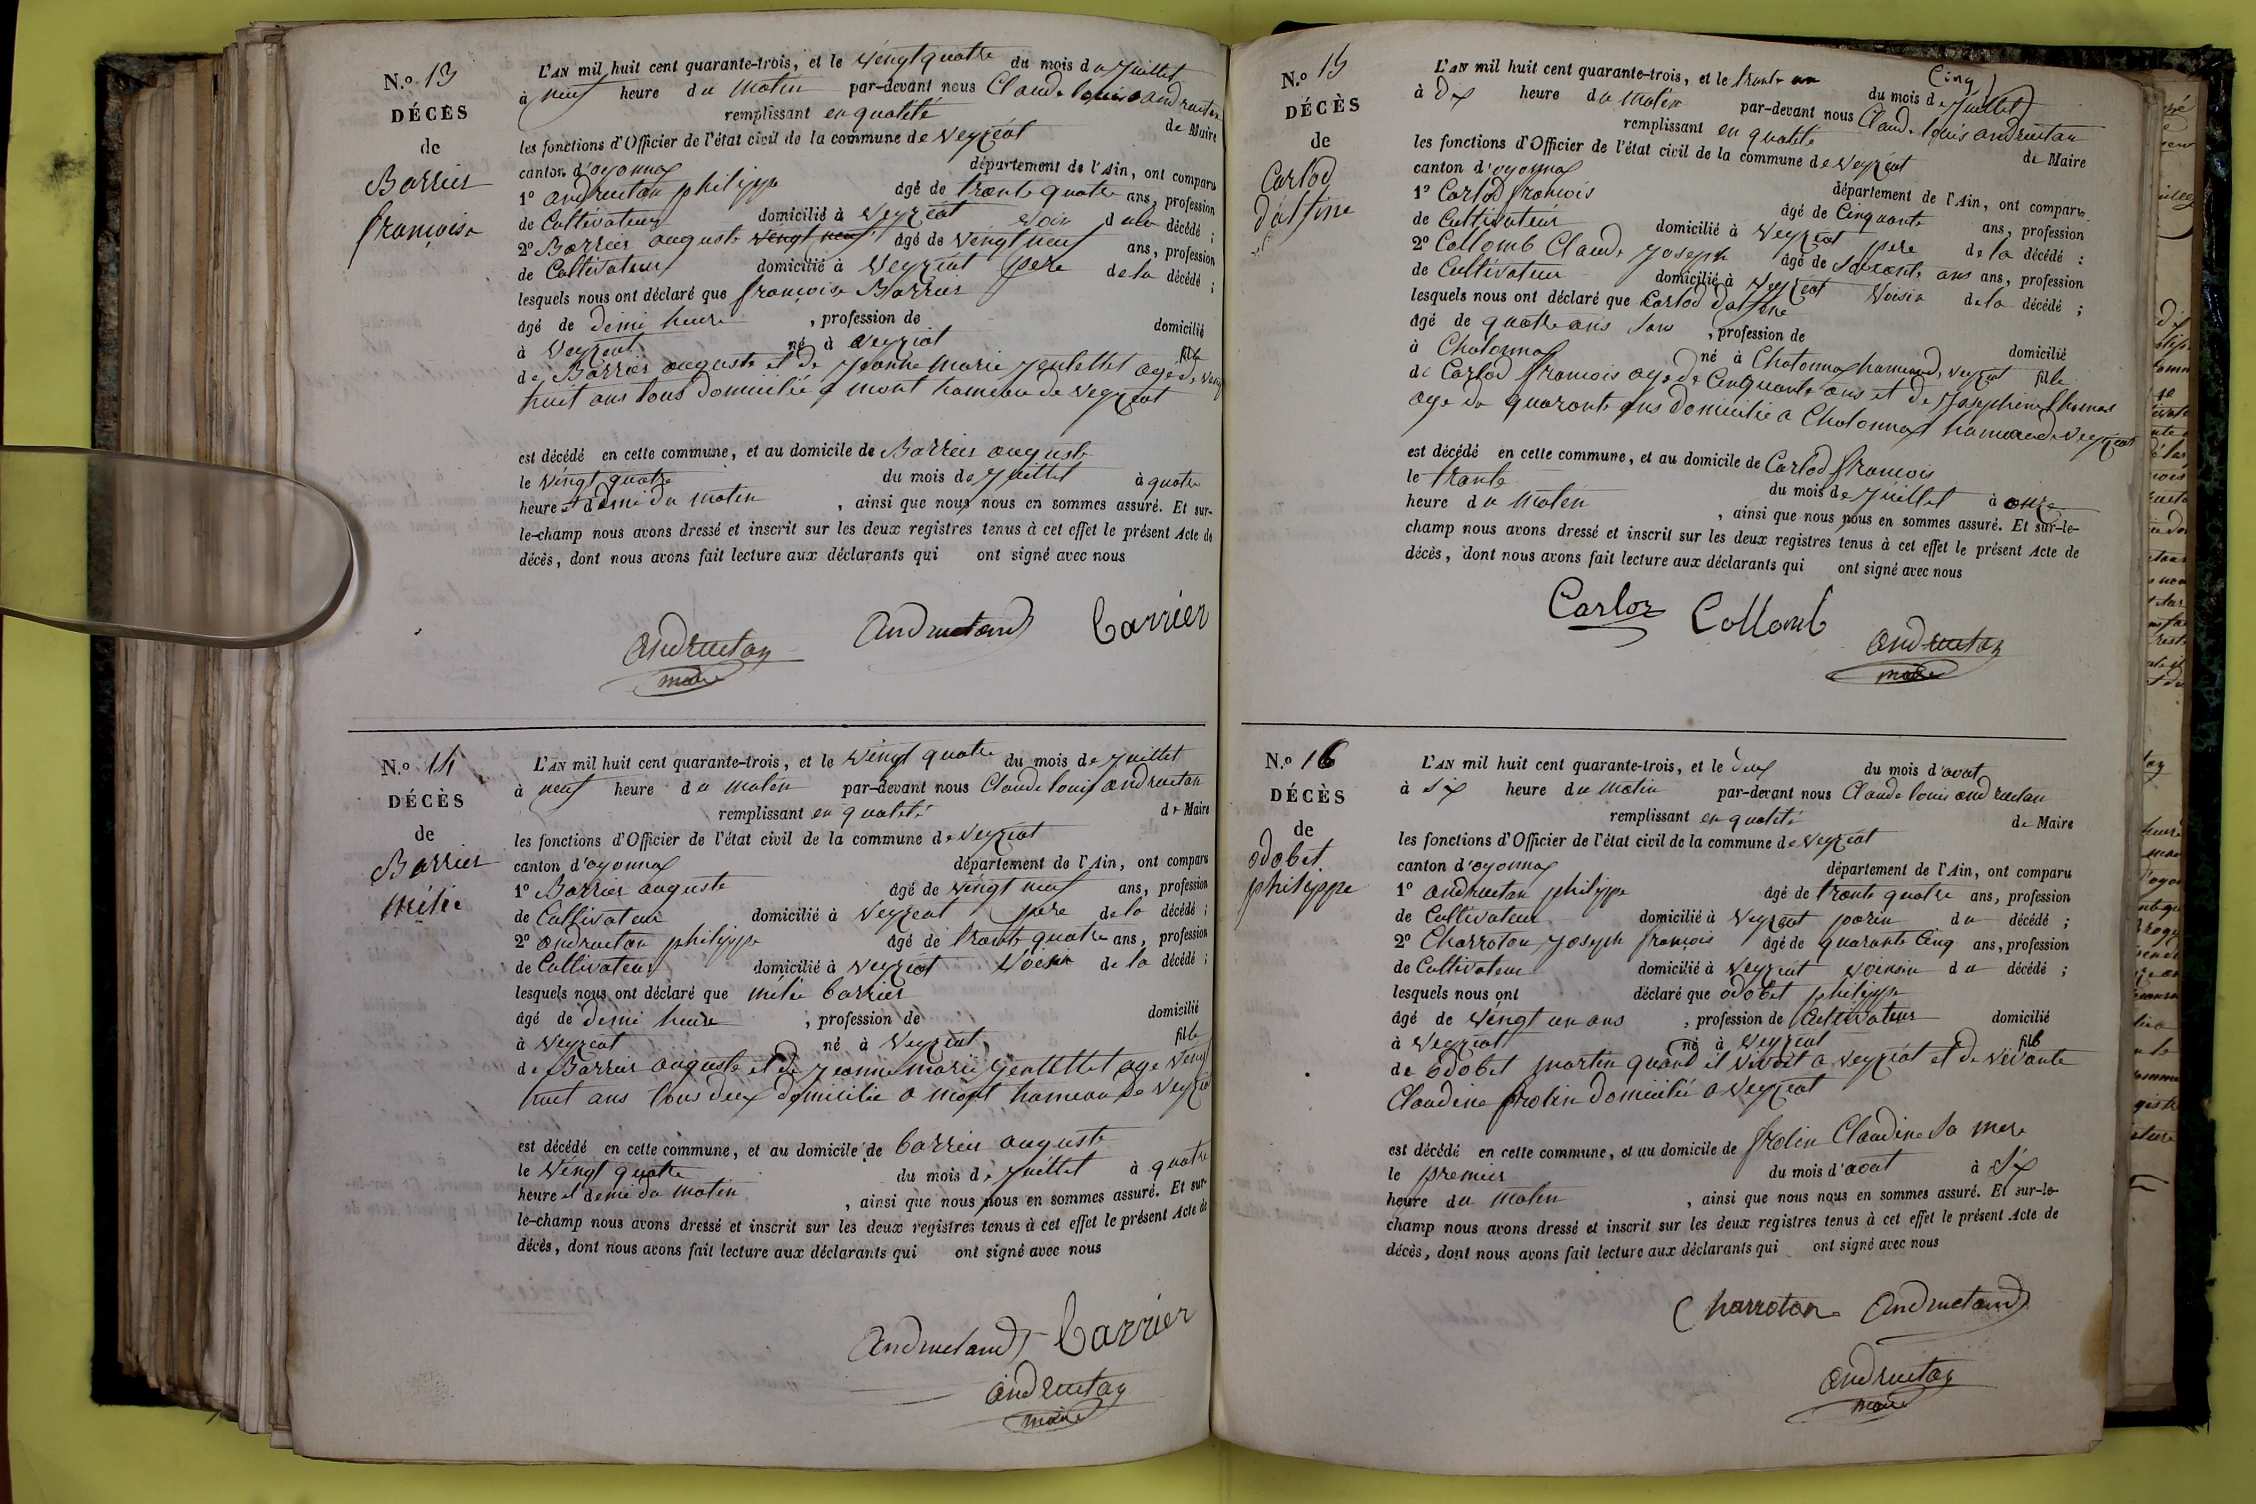 N.o 13
DÉCÈS
de
Barrier
françoise
L'AN mil huit cent quarante-trois, et le vingt quatre du mois de juillet
à neuf heure du matin par-devant nous Claude louis andruetan
remplissant en qualité de Maire
les fonctions d'Officier de l'état civil de la commune de veyziat
canton d'oyonnax département de l'Ain, ont comparu
1o andruetan philippe âgé de trante quatre ans, profession
de Cultivateur domicilié à veyziat voisin de la décédé ;
2o Barrier auguste vingt neuf âgé de vingt neuf ans, profession
de Cultivateur domicilié à veyziat pere de la décédé ;
lesquels nous ont déclaré que françoise Barrier
âgé de demi heure , profession de domicilié
à veyziat né à veyziat fille
de Barrier auguste et de jeanne marie jentellet age de vingt
huit ans tous domicilié a mont hameau de veyziat
est décédé en cette commune, et au domicile de Barrier auguste
le vingt quatre du mois de juillet à quatre
heure et demi du matin , ainsi que nous nous en sommes assuré. Et sur-
le-champ nous avons dressé et inscrit sur les deux registres tenus à cet effet le présent Acte de
décès, dont nous avons fait lecture aux déclarants qui ont signé avec nous
andruetan andruetand barrier
maire
N.o 14
DÉCÈS
de
Barrier
mélie
L'AN mil huit cent quarante-trois, et le vingt quatre du mois de juillet
à neuf heure du matin par-devant nous Claude louis andruetan
remplissant en qualité de Maire
les fonctions d'Officier de l'état civil de la commune de veyziat
canton d'oyonnax département de l'Ain, ont comparu
1o Barrier auguste âgé de vingt neuf ans, profession
de Cultivateur domicilié à veyziat pere de la décédé ;
2o andruetan philippe âgé de trante quatre ans, profession
de Cultivateur domicilié à veyziat voisin de la décédé ;
lesquels nous ont déclaré que mélie barrier
âgé de demi heure , profession de domicilié
à veyziat né à veyziat fille
de Barrier auguste et de jeanne marie gentellet age vingt
huit ans tous deux domicilié a mont hameau de veyziat
est décédé en cette commune, et au domicile de barrier auguste
le vingt quatre du mois de juillet à quatre
heure et demi du matin , ainsi que nous nous en sommes assuré. Et sur-
le-champ nous avons dressé et inscrit sur les deux registres tenus à cet effet le présent Acte de
décès, dont nous avons fait lecture aux déclarants qui ont signé avec nous
andruetand barrier
andruetan
maire
N.o 15
DÉCÈS
de
Carlod
dalfine
L'AN mil huit cent quarante-trois, et le trante un du mois de juillet
à dix heure du matin par-devant nous Claude louis andruetan
remplissant en qualité de Maire
les fonctions d'Officier de l'état civil de la commune de veyziat
canton d'oyonnax département de l'Ain, ont comparu
1o Carlod francois âgé de Cinquante ans, profession
de Cultivateur domicilié à veyziat pere de la décédé :
2o Collomb Claude joseph âgé de soixante ans ans, profession
de Cultivateur domicilié à veyziat voisin de la décédé ;
lesquels nous ont déclaré que Carlod dalfine
âgé de quatre ans sans , profession de domicilié
à Chatonnax né à Chatonnax hameau de veyziat fille
de Carlod francois age de Cinquante ans et de josephine thomas
age de quarante ans domicilié a Chatonnax hameau de veyziat
est décédé en cette commune, et au domicile de Carlod francois
le trante du mois de juillet à onze
heure du matin , ainsi que nous nous en sommes assuré. Et sur-le-
champ nous avons dressé et inscrit sur les deux registres tenus à cet effet le présent Acte de
décès, dont nous avons fait lecture aux déclarants qui ont signé avec nous
Carloz Collomb andruetan
maire
N.o 16
DÉCÈS
de
odobet
philippe
L'AN mil huit cent quarante-trois, et le deux du mois d'avat
à six heure du matin par-devant nous Claude louis andruetan
remplissant en qualité de Maire
les fonctions d'Officier de l'état civil de la commune de veyziat
canton d'oyonnax département de l'Ain, ont comparu
1o andruetan philippe âgé de trante quatre ans, profession
de Cultivateur domicilié à veyziat parin du décédé ;
2o Charroton joseph françois âgé de quarante Cinq ans, profession
de Cultivateur domicilié à veyziat voinsin du décédé ;
lesquels nous ont déclaré que odobet philippe
âgé de vingt un ans , profession de Cultivateur domicilié
à veyziat né à veyziat fils
de odobet martin quand il vivait a veyziat et de vivante
Claudine frolin domicilié a veyziat
est décédé en cette commune, et au domicile de frolin Claudine sa mere
le premier du mois d'avat à six
heure du matin , ainsi que nous nous en sommes assuré. Et sur-le-
champ nous avons dressé et inscrit sur les deux registres tenus à cet effet le présent Acte de
décès, dont nous avons fait lecture aux déclarants qui ont signé avec nous
Charroton andruetand
andruetan
maire